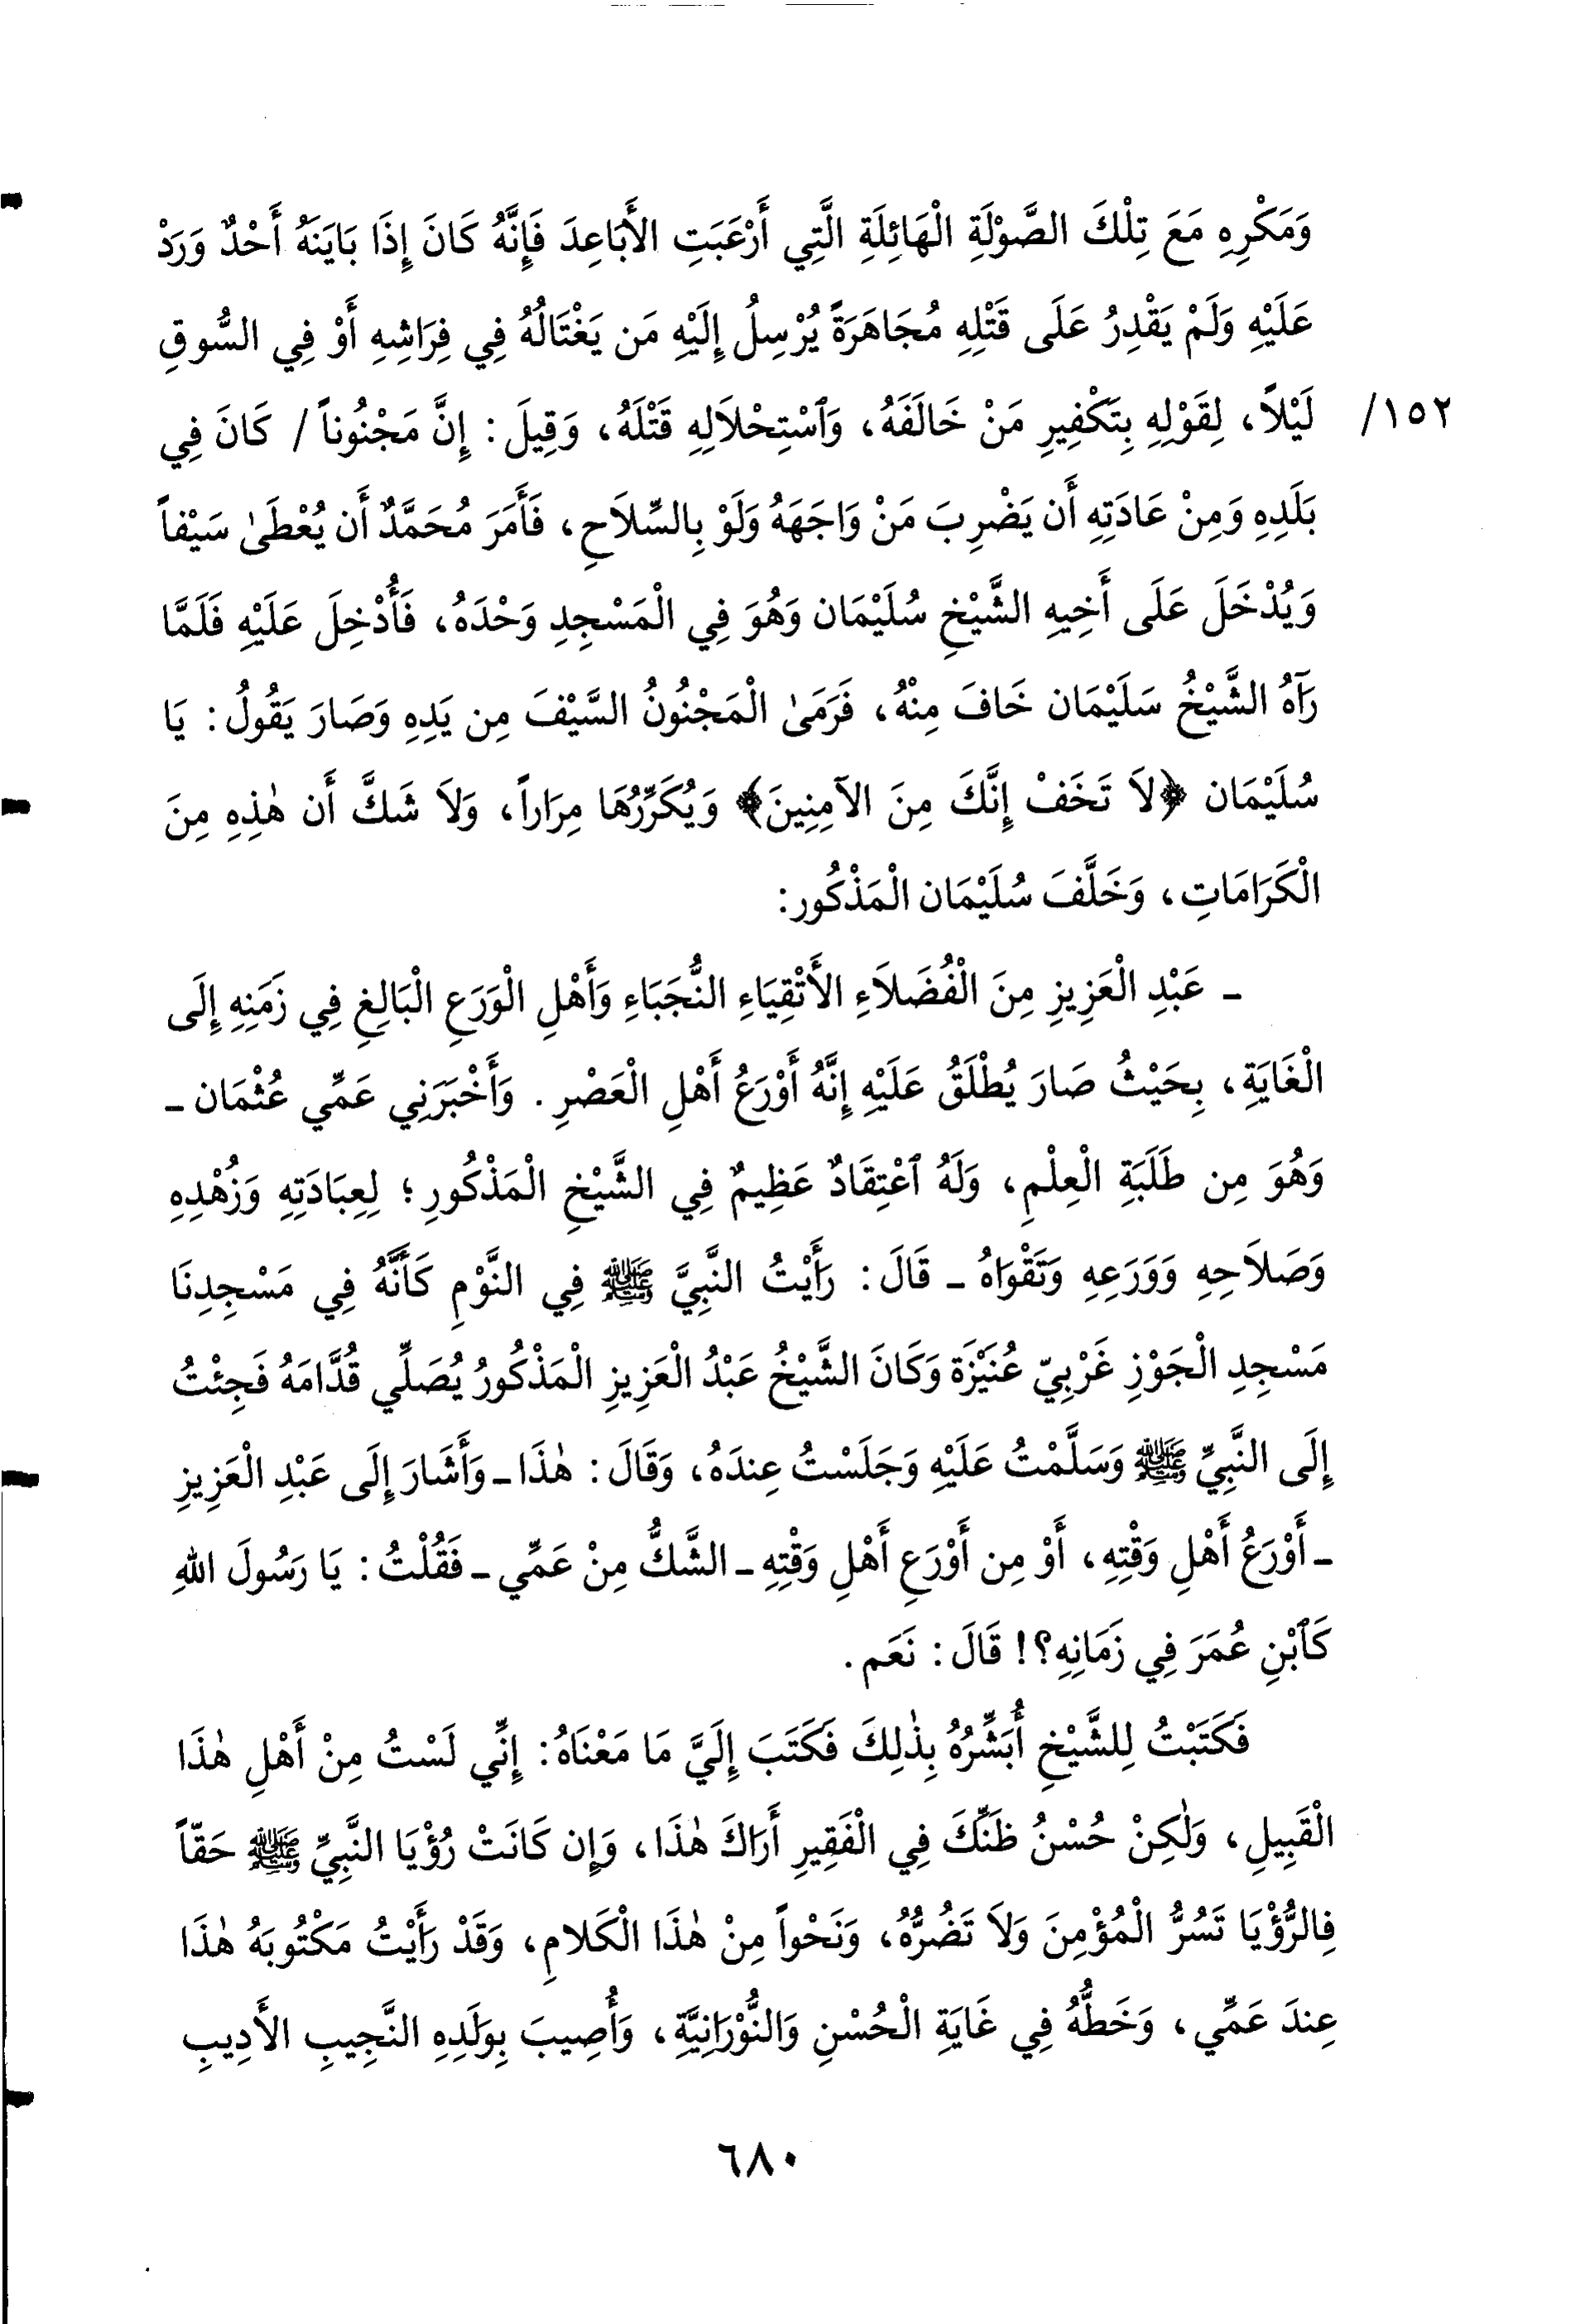 وَمَكْرِهِ مَعَ تِلْكَ الصَّوْلَةِ الْهَائِلَةِ الَّتِي أَرْعَبَتِ الأَبَاعِدَ فَإِنَّهُ كَانَ إِذَا بَايَنَهُ أَحْدٌ وَرَدْ
عَلَيْهِ وَلَمْ يَقْدِرُ عَلَى قَتْلِهِ مُجَاهَرَةً يُرْسِلُ إِلَيْهِ مَن يَغْتَالُهُ فِي فِرَاشِهِ أَوْ فِي السُّوقِ
١٥٢/ لَيْلاً، لِقَوْلِهِ بِتَكْفِيرِ مَنْ خَالَفَهُ، وَٱسْتِحْلاَلِهِ قَتْلَهُ، وَقِيلَ: إِنَّ مَجْنُوناً / كَانَ فِي
بَلَدِهِ وَمِنْ عَادَتِهِ أَن يَضْرِبَ مَنْ وَاجَهَهُ وَلَوْ بِالسِّلاَحِ، فَأَمَرَ مُحَمَّدٌ أَن يُعْطَىٰ سَيْفاً
وَيُدْخَلَ عَلَى أَخِيهِ الشَّيْخِ سُلَيْمَان وَهُوَ فِي الْمَسْجِدِ وَحْدَهُ، فَأُدْخِلَ عَلَيْهِ فَلَمَّا
رَآهُ الشَّيْخُ سَلَيْمَان خَافَ مِنْهُ، فَرَمَىٰ الْمَجْنُونُ السَّيْفَ مِن يَدِهِ وَصَارَ يَقُولُ: يَا
سُلَيْمَان ﴿لاَ تَخَفْ إِنَّكَ مِنَ الآمِنِينَ﴾ وَيُكَرِّرُهَا مِرَاراً، وَلاَ شَكَّ أَن هٰذِهِ مِنَ
الْكَرَامَاتِ، وَخَلَّفَ سُلَيْمَان الْمَذْكُور:
ـ عَبْدِ الْعَزِيزِ مِنَ الْفُضَلاَءِ الأَتْقِيَاءِ النُّجَبَاءِ وَأَهْلِ الْوَرَعِ الْبَالِغِ فِي زَمَنِهِ إِلَى
الْغَايَةِ، بِحَيْثُ صَارَ يُطْلَقُ عَلَيْهِ إِنَّهُ أَوْرَعُ أَهْلِ الْعَصْرِ. وَأَخْبَرَنِي عَمِّي عُثْمَان ـ
وَهُوَ مِن طَلَبَةِ الْعِلْمِ، وَلَهُ ٱعْتِقَادٌ عَظِيمٌ فِي الشَّيْخِ الْمَذْكُورِ؛ لِعِبَادَتِهِ وَزُهْدِهِ
وَصَلاَحِهِ وَوَرَعِهِ وَتَقْوَاهُ ـ قَالَ: رَأَيْتُ النَّبِيَّ ﷺ فِي النَّوْمِ كَأَنَّهُ فِي مَسْجِدِنَا
مَسْجِدِ الْجَوْزِ غَرْبِيّ عُنَيْزَة وَكَانَ الشَّيْخُ عَبْدُ الْعَزِيزِ الْمَذْكُورُ يُصَلِّي قُدَّامَهُ فَجِئْتُ
إِلَى النَّبِيِّ ﷺ وَسَلَّمْتُ عَلَيْهِ وَجَلَسْتُ عِندَهُ، وَقَالَ: هٰذَا ـ وَأَشَارَ إِلَى عَبْدِ الْعَزِيزِ
ـ أَوْرَعُ أَهْلِ وَقْتِهِ، أَوْ مِن أَوْرَعِ أَهْلِ وَقْتِهِ ـ الشَّكُّ مِنْ عَمِّي ـ فَقُلْتُ: يَا رَسُولَ اللهِ
كَٱبْنِ عُمَرَ فِي زَمَانِهِ؟! قَالَ: نَعَم.
فَكَتَبْتُ لِلشَّيْخِ أُبَشِّرُهُ بِذٰلِكَ فَكَتَبَ إِلَيَّ مَا مَعْنَاهُ: إِنِّي لَسْتُ مِنْ أَهْلِ هٰذَا
الْقَبِيلِ، وَلٰكِنْ حُسْنُ ظَنِّكَ فِي الْفَقِيرِ أَرَاكَ هٰذَا، وَإِن كَانَتْ رُؤْيَا النَّبِيِّ ﷺ حَقّاً
فِالرُّؤْيَا تَسُرُّ الْمُؤْمِنَ وَلاَ تَضُرُّهُ، وَنَحْواً مِنْ هٰذَا الْكَلامِ، وَقَدْ رَأَيْتُ مَكْتُوبَهُ هٰذَا
عِندَ عَمِّي، وَخَطُّهُ فِي غَايَةِ الْحُسْنِ وَالنُّوْرَانِيَّةِ، وَأُصِيبَ بِوَلَدِهِ النَّجِيبِ الأَدِيبِ
٦٨٠